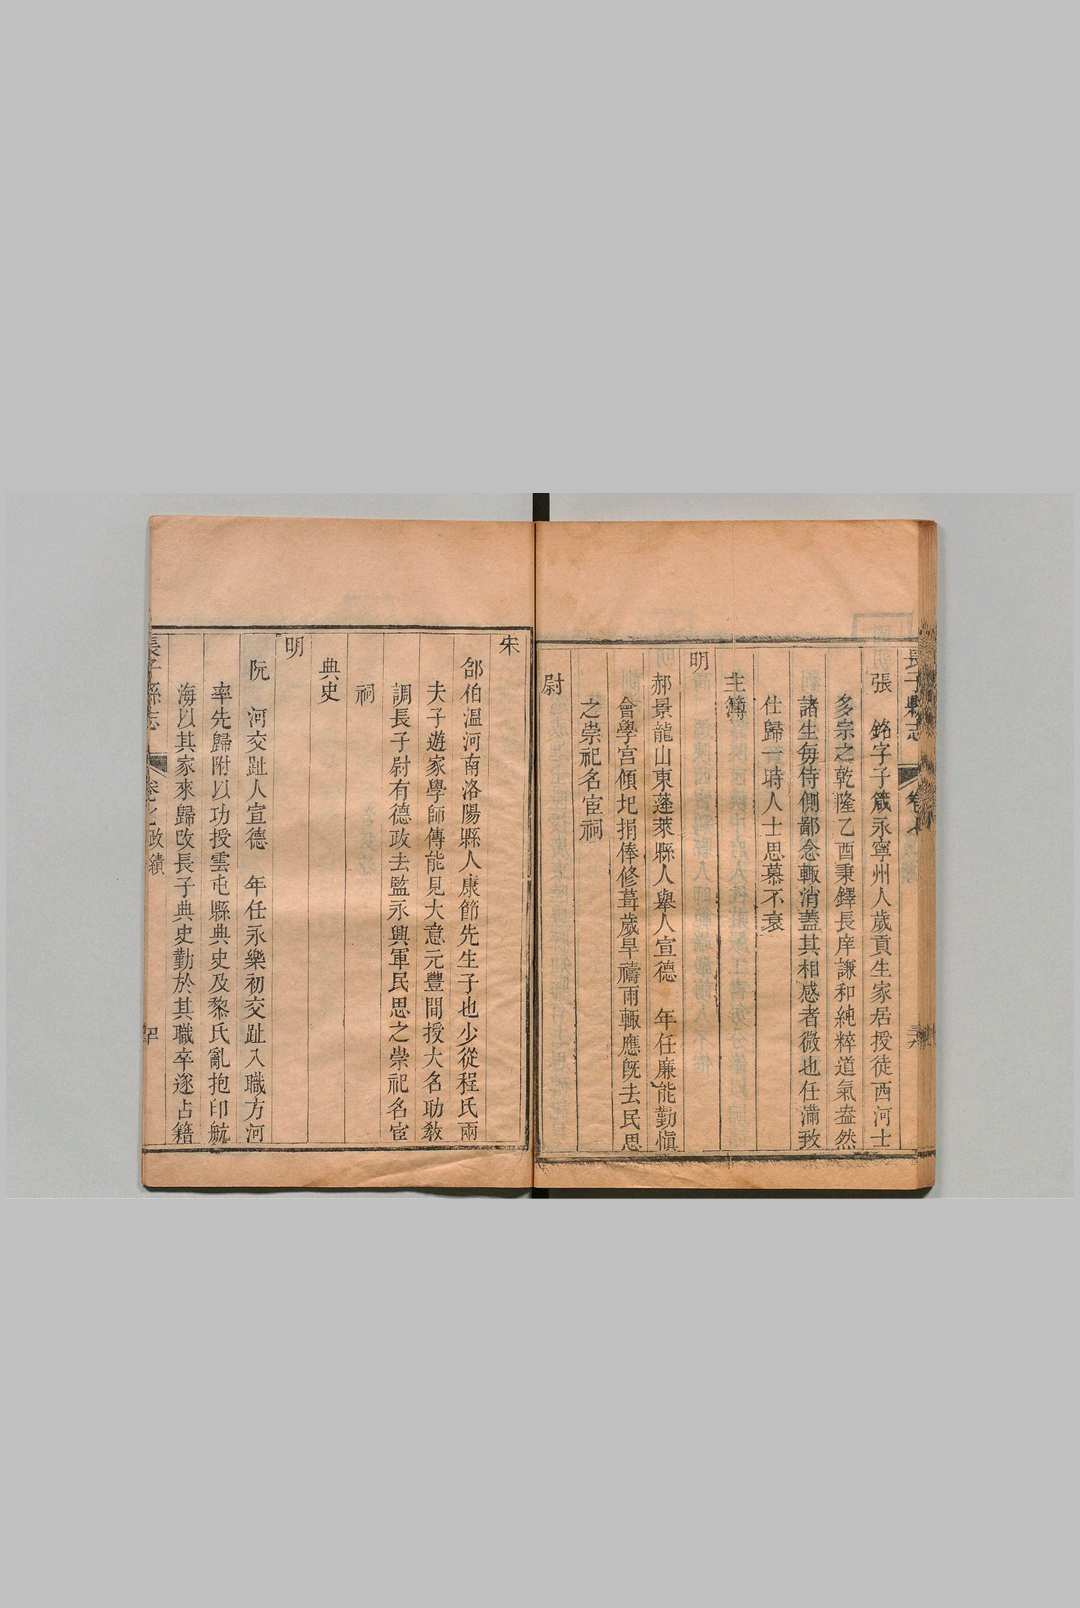 長子縣志　卷七
張　銘字子箴永寧州人歲貢生家居授徒西河士
多宗之乾隆乙酉秉鐸長庠謙和純粹道氣盎然
諸生每侍側鄙念輒消蓋其相感者微也任滿致
仕歸一時人士思慕不衰
主簿
明
郝景龍山東蓬萊縣人舉人宣德　年任廉能勤愼
會學宮傾圮捐俸修葺歲旱禱雨輒應旣去民思
之崇祀名宦祠
尉
宋
邵伯溫河南洛陽縣人康節先生子也少從程氏兩
夫子遊家學師傳能見大意元豐間授大名助敎
調長子尉有德政去監永興軍民思之崇祀名宦
祠
典史
明
阮　河交趾人宣德　年任永樂初交趾入職方河
率先歸附以功授雲屯縣典史及黎氏亂抱印航
海以其家來歸改長子典史勤於其職卒遂占籍
長子縣志　卷七政績